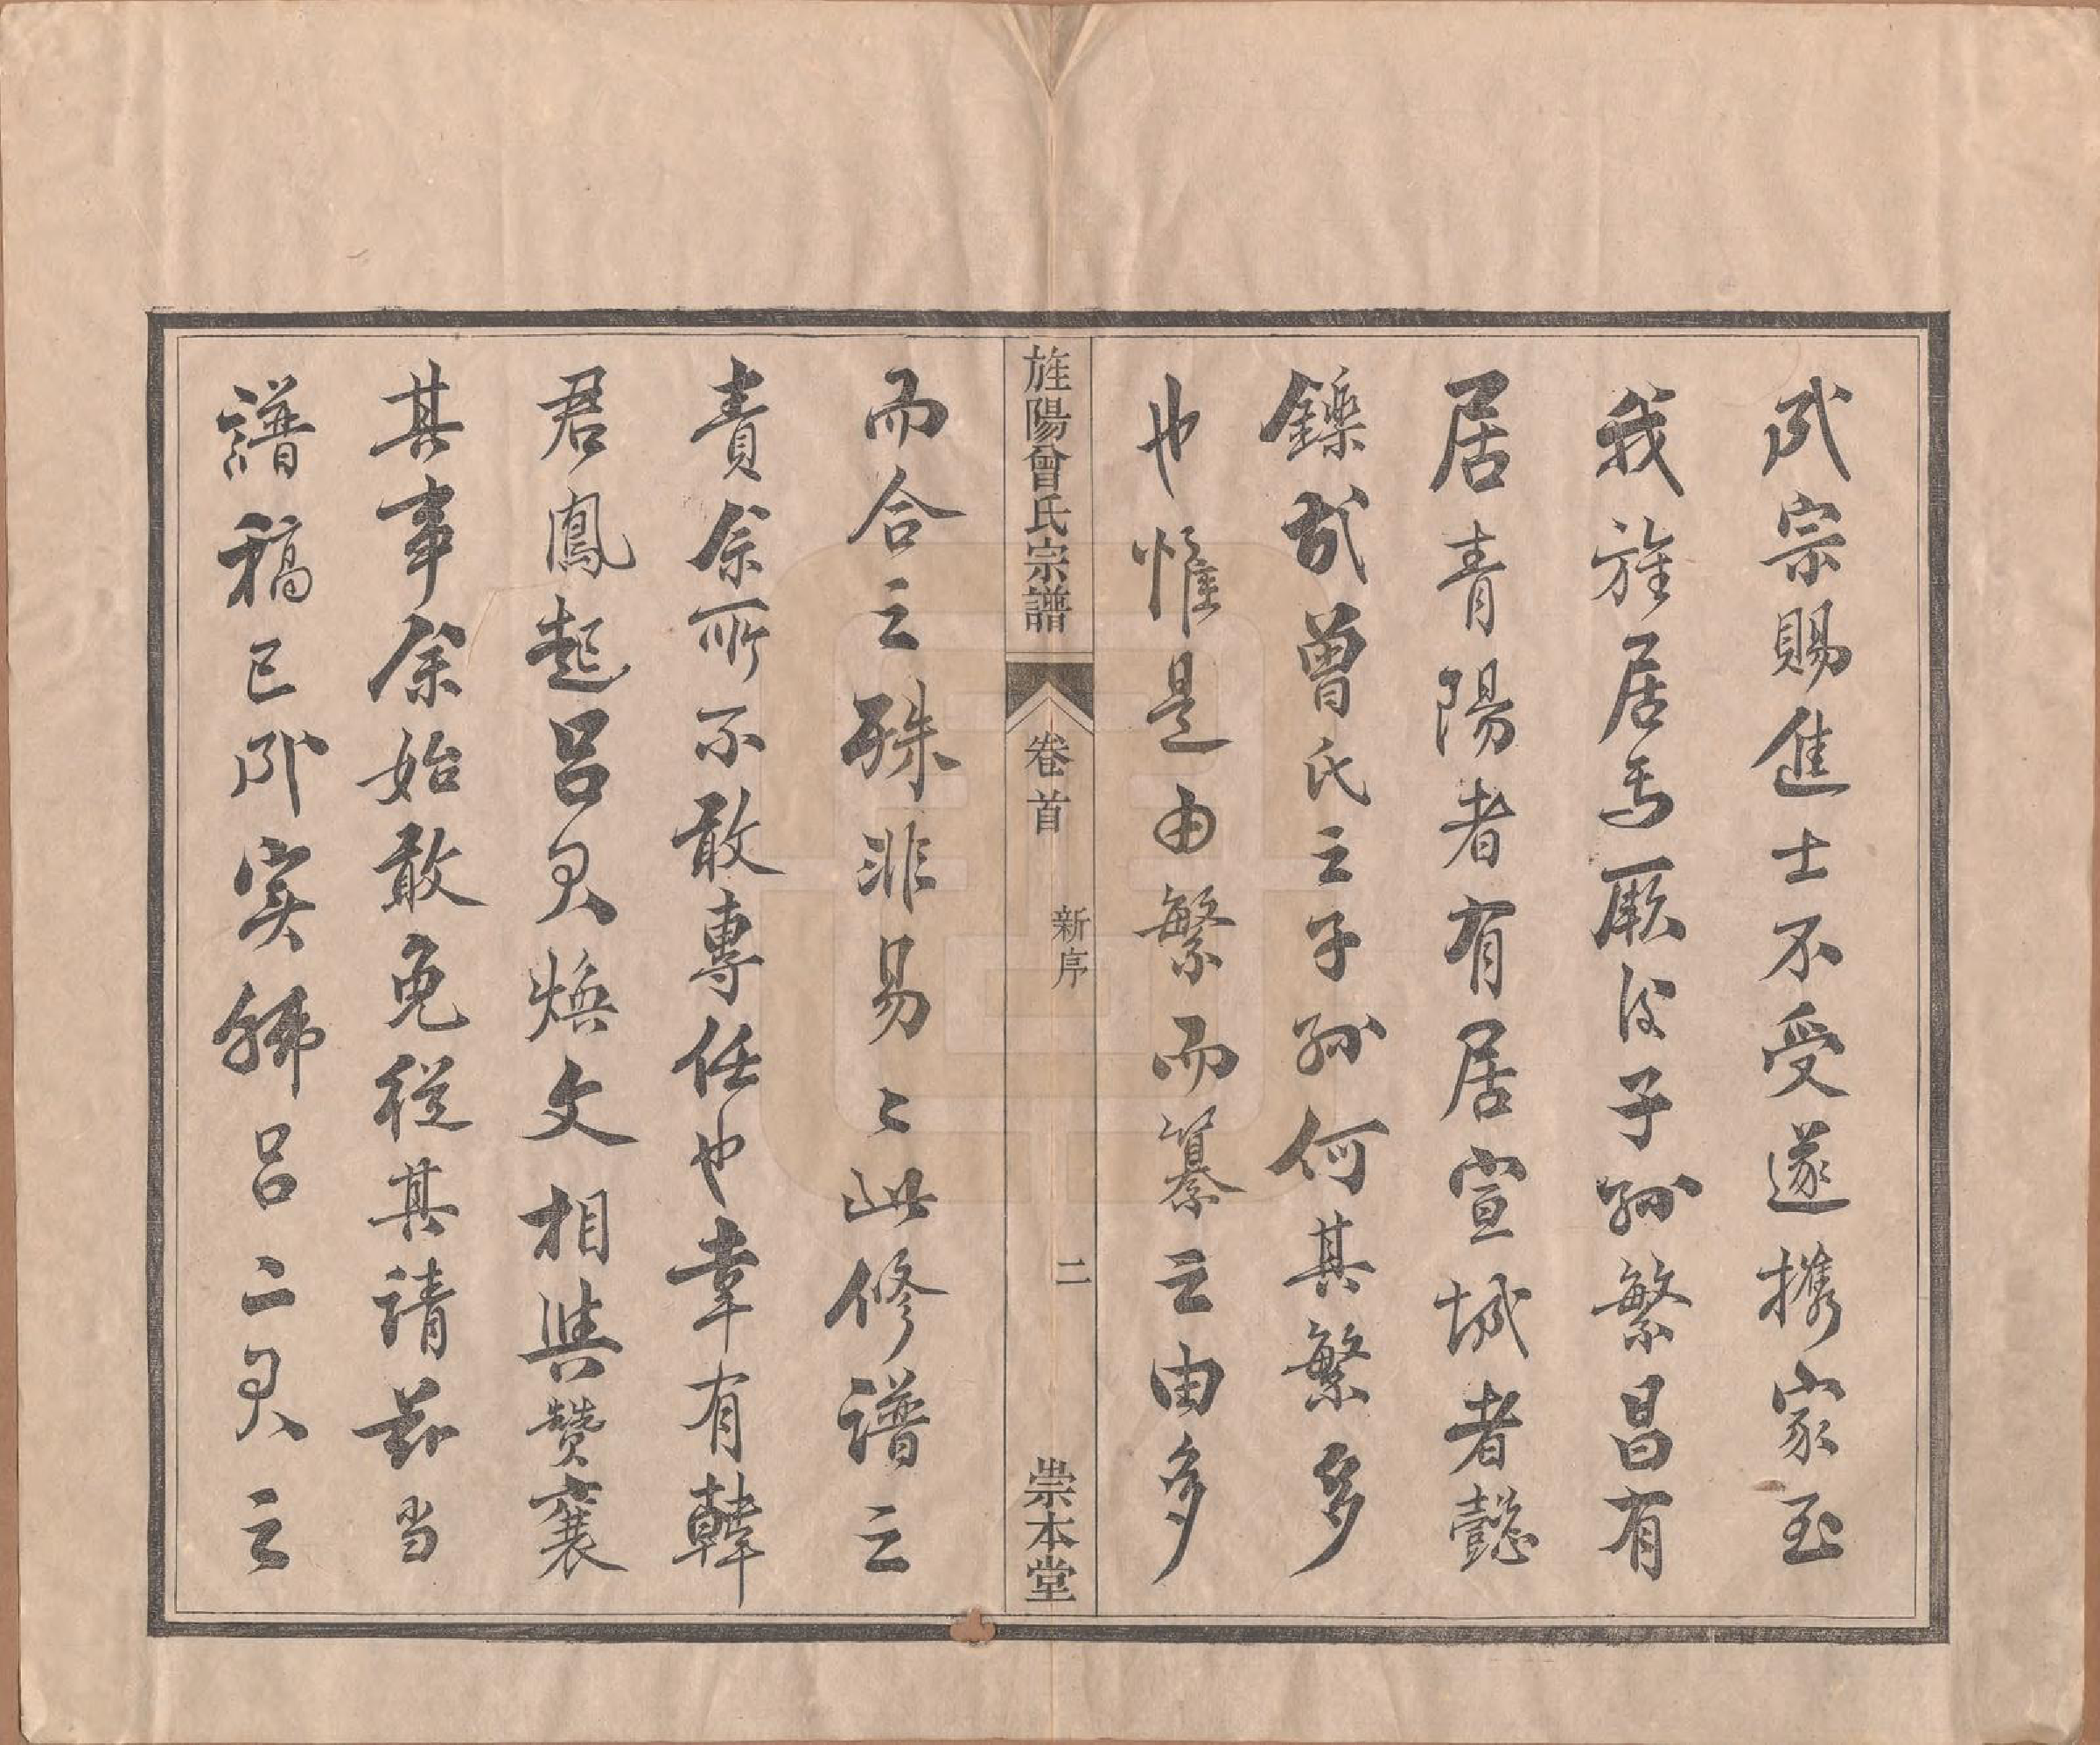 武宗賜進士不受遂携家至
我旌居焉厥後子孫繁昌有
居青陽者有居宣城者懿
鑠哉曾氏之子孫何其繁多
也惟是由繁而纂之由多
旌陽曾氏宗譜
卷首
新序
二
崇本堂
而合之殊非易〻此修譜之
責余所不敢專任也幸有韓
君鳳起呂君煥文相與贊襄
其事余始敢勉從其請茲当
譜稿已成实韓呂二君之